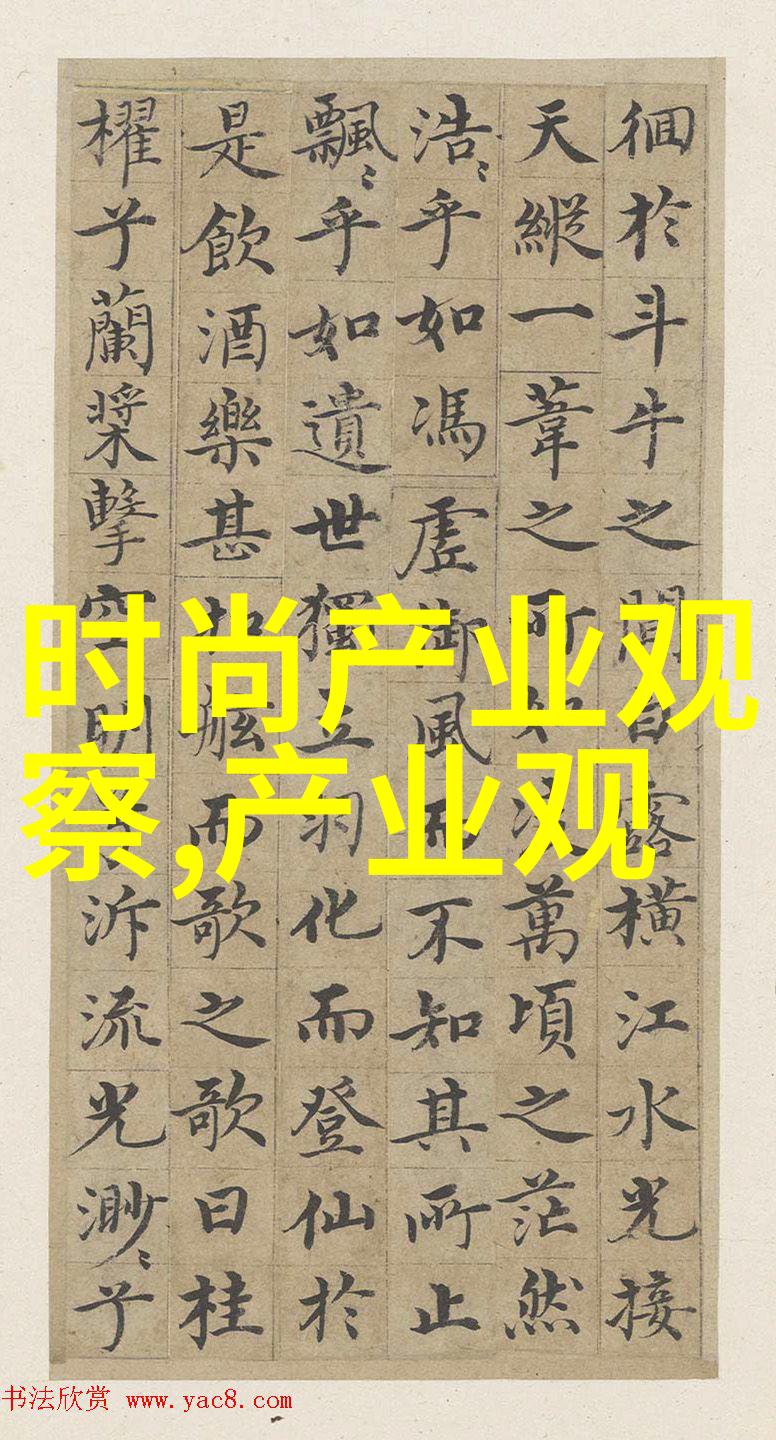 徊於斗牛之間白露橫江水光接
天縱一葦之所如凌萬頃之茫然
浩〻乎如馮虛御風而不知其所止
飄〻乎如遺世獨立羽化而登仙於
是飲酒樂甚扣舷而歌之歌曰桂
櫂兮蘭槳擊空明兮泝流光渺〻兮
时尚产业观
察,产业观
书法欣赏 www.yac8.com